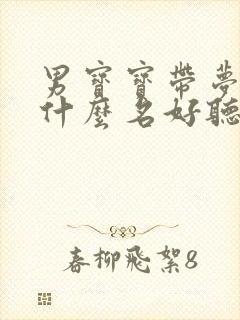 男寶寶帶夢
什麼名好聽
春柳飛絮8